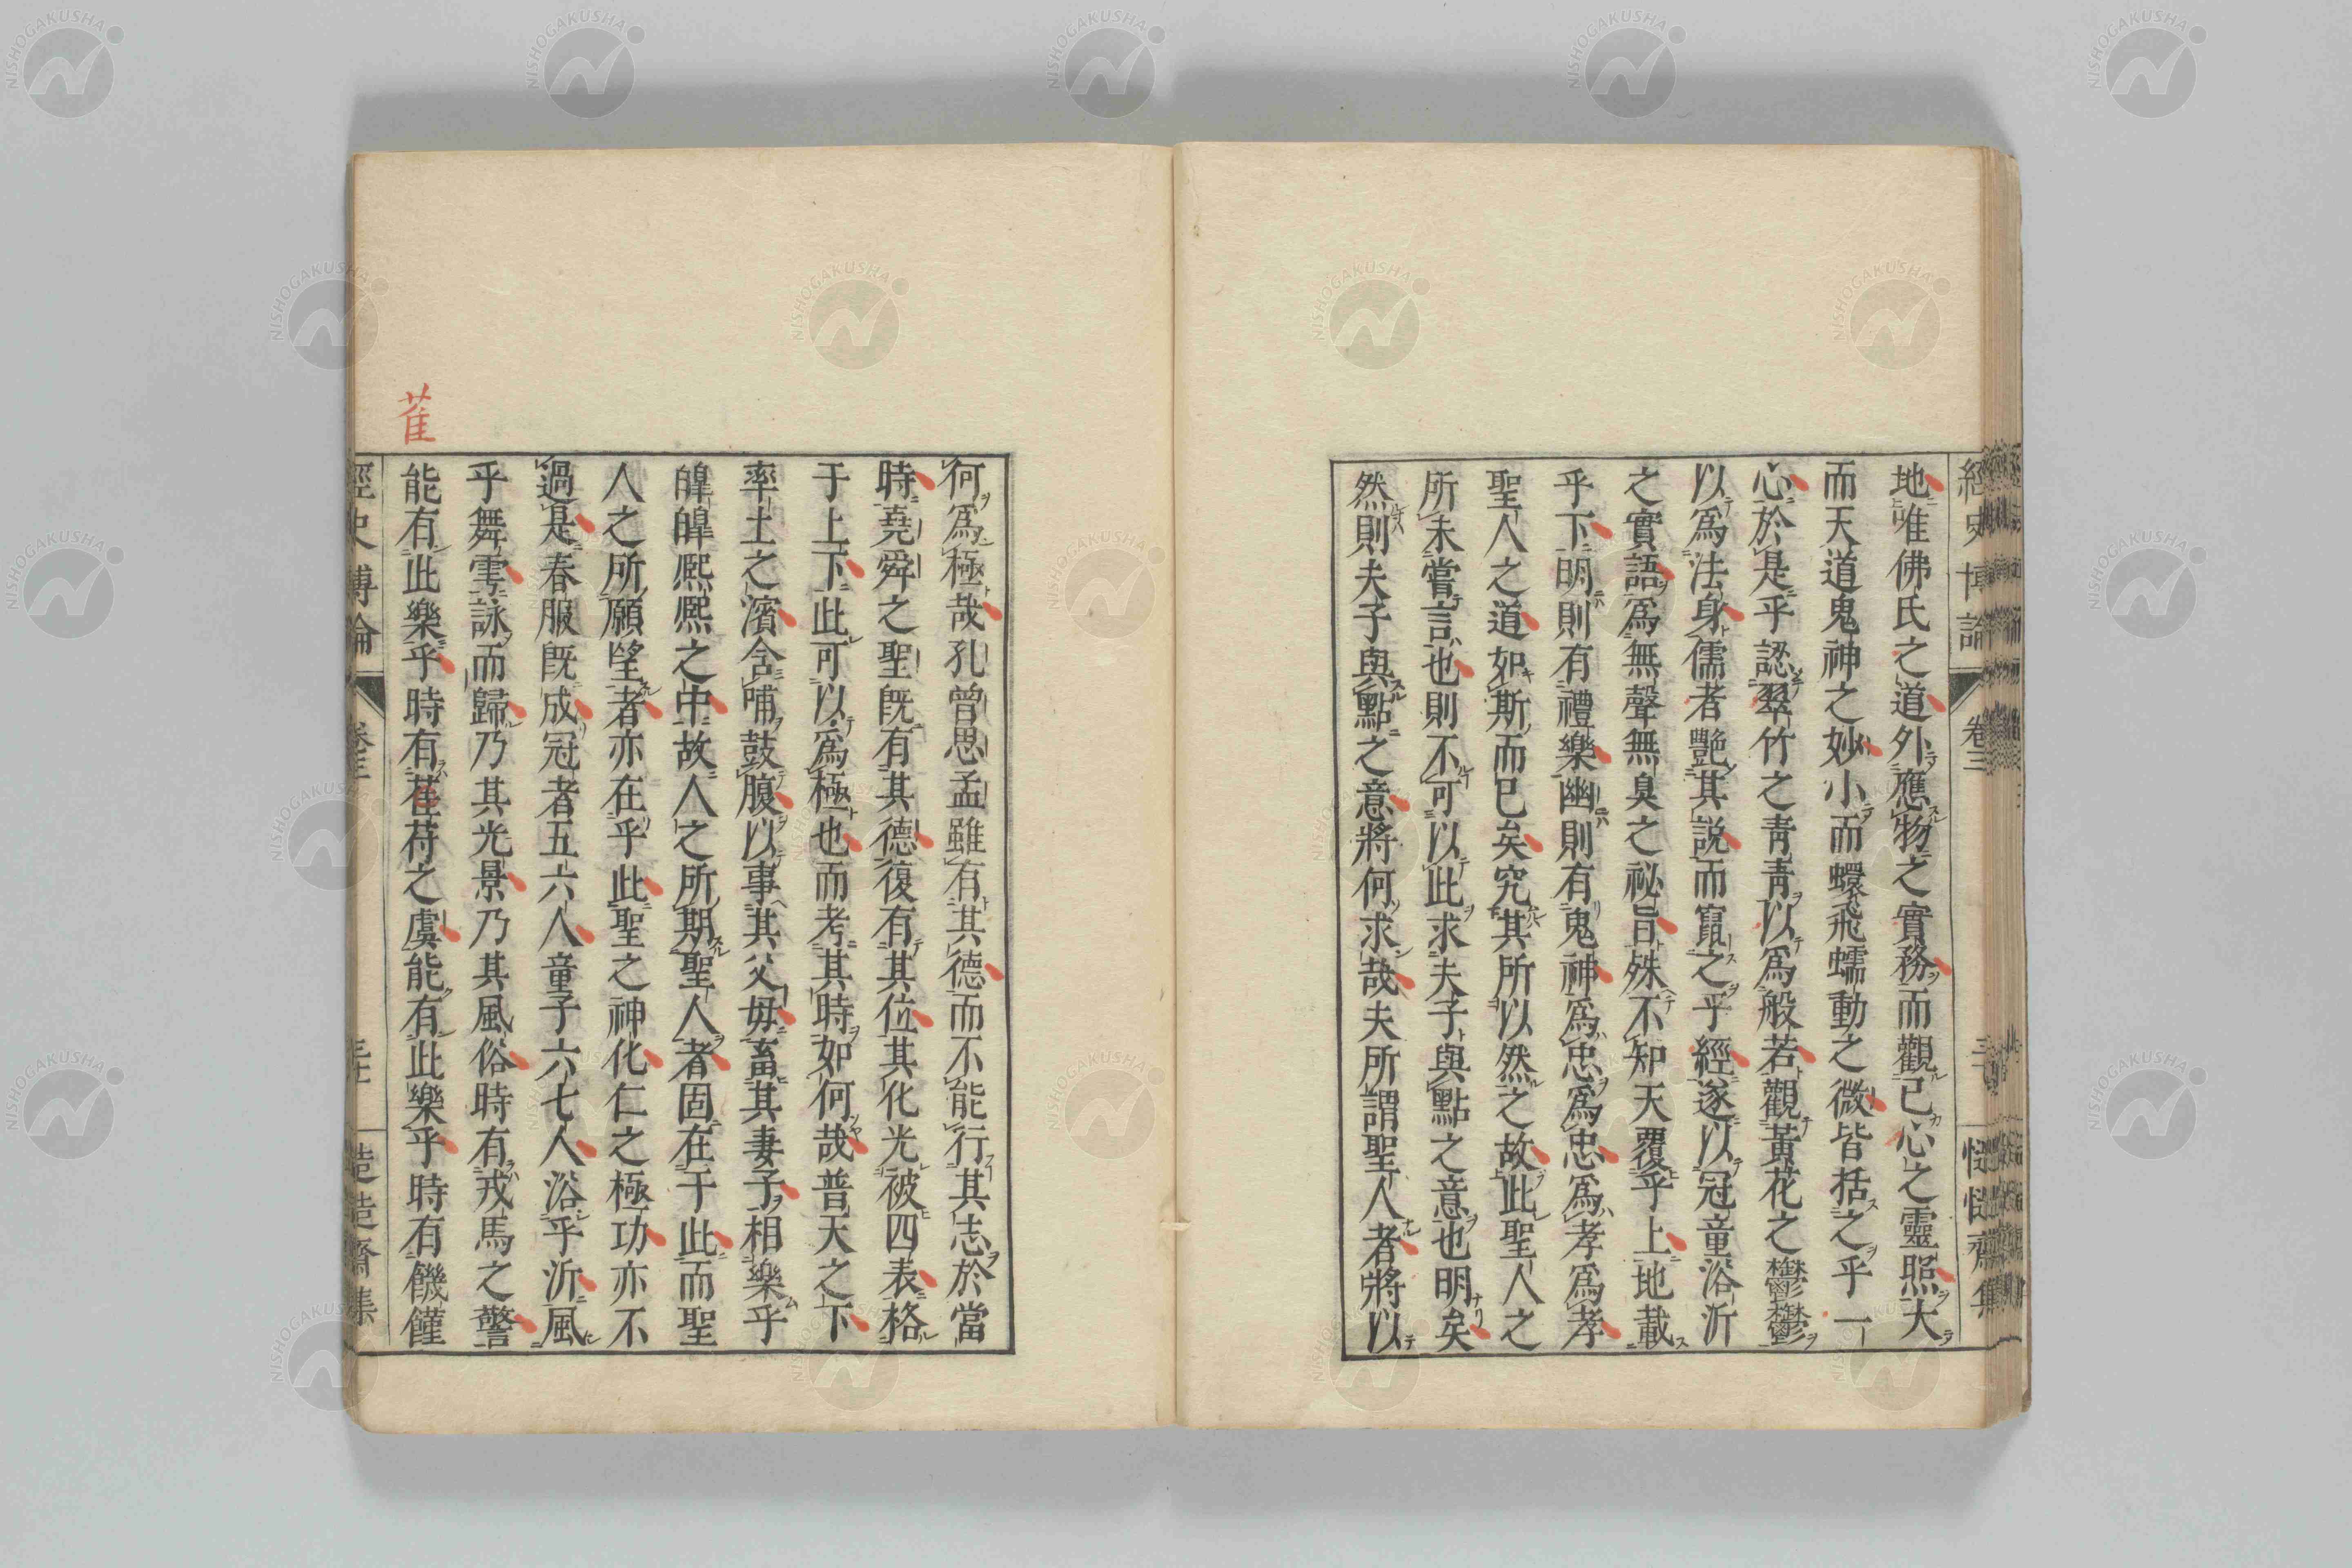 經史博論 卷三
地唯佛氏之道外應物之實務而觀己心之靈照大
而天道鬼神之妙小而蠉飛蠕動之微皆括之乎一
心於是乎認翠竹之青青以為般若觀黃花之鬱鬱
以為法身儒者艷其說而竄之乎經遂以冠童浴沂
之實語為無聲無臭之祕旨殊不知天覆乎上地載
乎下明則有禮樂幽則有鬼神為忠為忠為孝為孝
聖人之道如斯而已矣究其所以然之故此聖人之
所未嘗言也則不可以此求夫子與點之意也明矣
然則夫子與點之意將何求哉夫所謂聖人者將以
何為極哉孔曾思孟雖有其德而不能行其志於當
時堯舜之聖既有其德復有其位其化光被四表格
于上下此可以為極也而考其時如何哉普天之下
率土之濱含哺鼓腹以事其父母畜其妻子相樂乎
皞皞熙熙之中故人之所期聖人者固在于此而聖
人之所願望者亦在乎此聖之神化仁之極功亦不
過是春服既成冠者五六人童子六七人浴乎沂風
乎舞雩詠而歸乃其光景乃其風俗時有戎馬之警
能有此樂乎時有萑苻之虞能有此樂乎時有饑饉
萑
經史博論 卷三
NISHOGAKUSHA